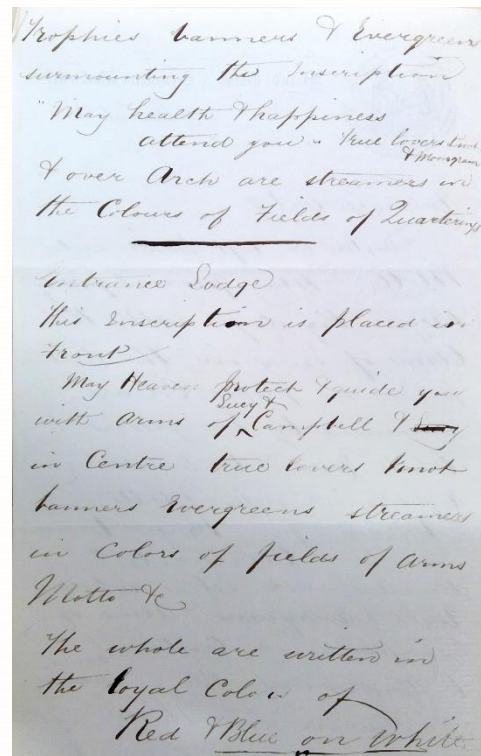 Trophies banners & Evergreens
surmounting the Inscription
"May health & happiness
attend you" True lovers knot
& Monogram
& over Arch are streamers in
the Colours of Fields of Quarterings
Entrance Lodge
This Inscription is placed in
Front
May Heaven protect & guide you
with Arms of Lucy & Campbell & Lucy
in Centre true lovers knot
banners Evergreens streamers
in Colors of fields of Arms
Motto &c
The whole are written in
the loyal Colors of
Red & Blue on White